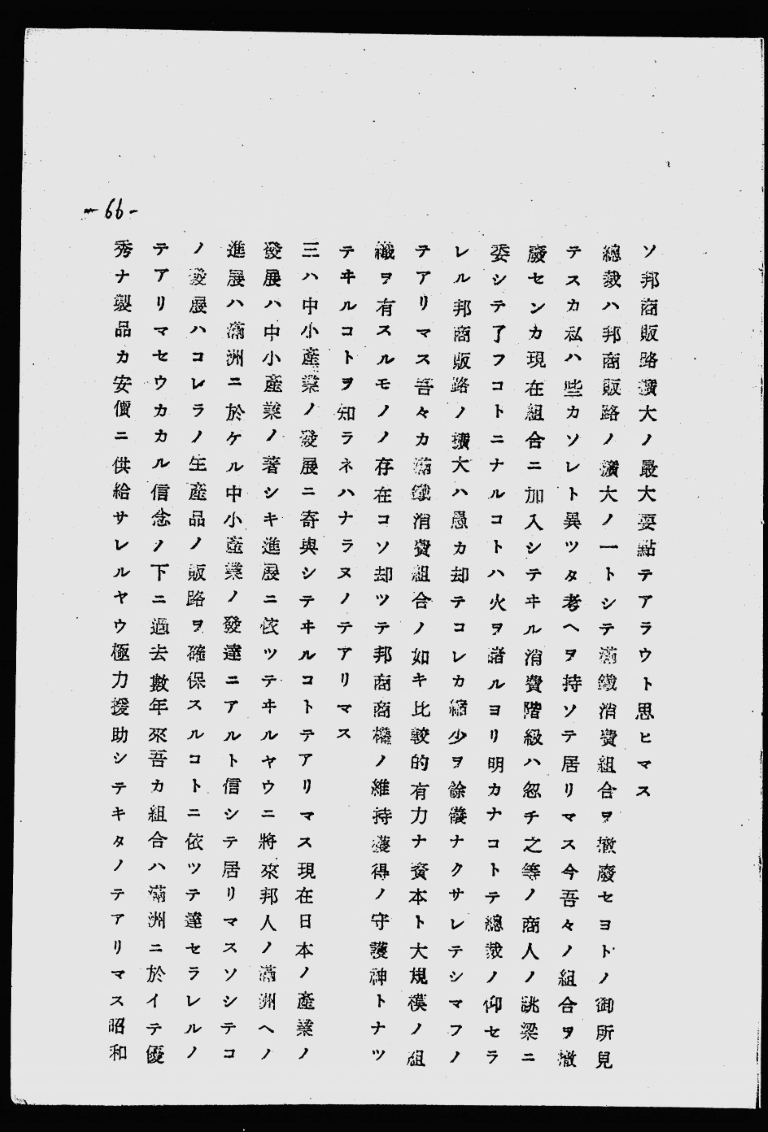 -66-
ソ邦商販路擴大ノ最大要點テアラウト思ヒマス
總裁ハ邦商販路ノ擴大ノ一トシテ滿鐵消費組合ヲ撤廢セヨトノ御所見
テスカ私ハ些カソレト異ツタ考ヘヲ持ソテ居リマス今吾々ノ組合ヲ撤
廢センカ現在組合ニ加入シテヰル消費階級ハ忽チ之等ノ商人ノ跳梁ニ
委シテ了フコトニナルコトハ火ヲ諸ルヨリ明カナコトテ總裁ノ仰セラ
レル邦商販路ノ擴大ハ愚カ却テコレカ縮少ヲ餘儀ナクサレテシマフノ
テアリマス吾々カ滿鐵消費組合ノ如キ比較的有力ナ資本ト大規模ノ組
織ヲ有スルモノノ存在コソ却ツテ邦商商機ノ維持獲得ノ守護神トナツ
テヰルコトヲ知ラネハナラヌノテアリマス
三ハ中小產業ノ發展ニ寄與シテヰルコトテアリマス現在日本ノ產業ノ
發展ハ中小產業ノ著シキ進展ニ依ツテヰルヤウニ將來邦人ノ滿洲ヘノ
進展ハ滿洲ニ於ケル中小產業ノ發達ニアルト信シテ居リマスソシテコ
ノ發展ハコレラノ生產品ノ販路ヲ確保スルコトニ依ツテ達セラレルノ
テアリマセウカカル信念ノ下ニ過去數年來吾カ組合ハ滿洲ニ於イテ優
秀ナ製品カ安價ニ供給サレルヤウ極力援助シテキタノテアリマス昭和